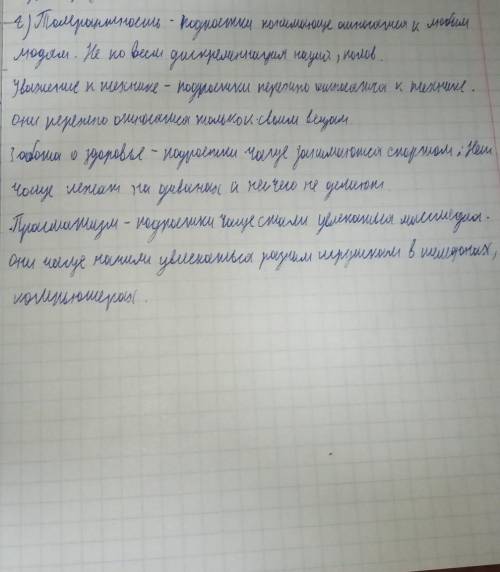 2) Толерантность - подростки понимающе относятся к любым
людям. Не ко всем дискреминация наций, полов.
Уважение к технике - подростки бережно относятся к технике.
Они бережно относятся только к своим вещам.
Забота о здоровье - подростки чаще занимаются спортом. Нет
чаще лежат на диванах и нечего не делают.
Прагматизм - подростки чаще стали увлекаться массмедиа.
Они чаще начали увлекаться разным игрушкам в телефонах,
компьютерах.